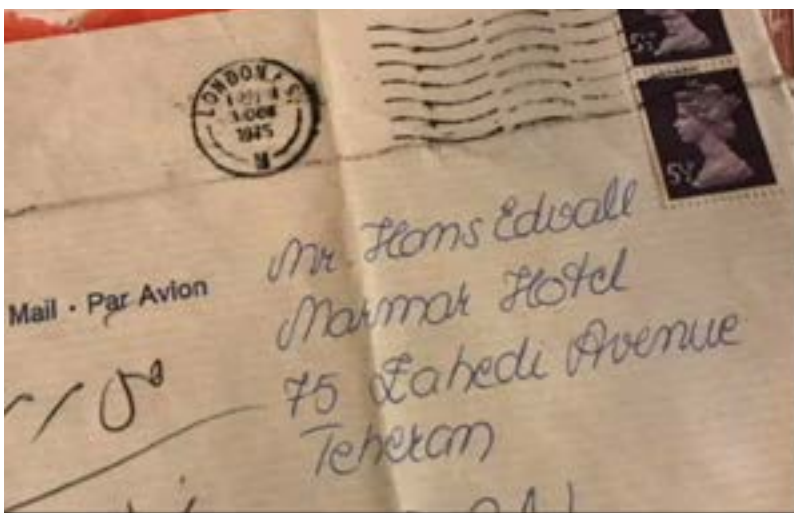 LONDON
1975
5½
5½
Mail · Par Avion
Mr Hans Edvall
Marmar Hotel
75 Zahedi Avenue
Teheran